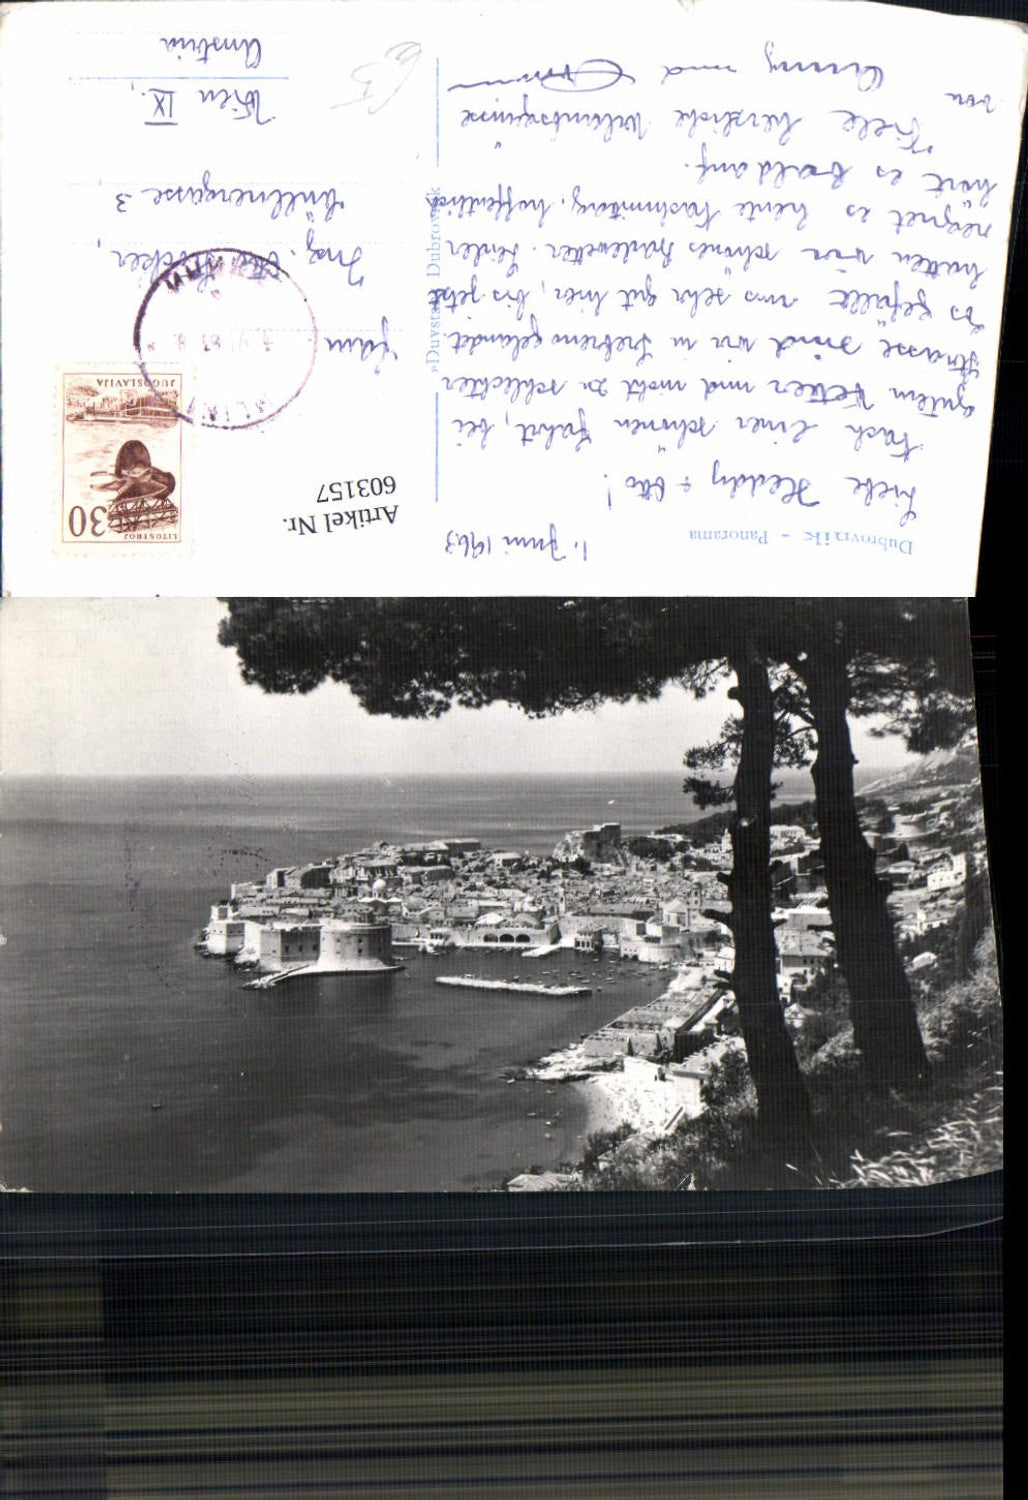 Dubrovnik - Panorama
1. Juni 1963
Liebe Heddy + Otto!
Nach einer schönen Fahrt, bei
gutem Wetter und nicht zu schlechter
Strasse sind wir in Srebreno gelandet.
Es gefällt uns sehr gut hier, bis jetzt
hatten wir schönes Badewetter. Leider
regnet es heute Vormittag, hoffentlich
hört es bald auf.
Viele herzliche Urlaubsgrüsse
von
Anny und
»Duvstampa« Dubrovnik
Artikel Nr.
603157
LITOSTROJ
30
JUGOSLAVIJA
Fam
Ing. Otto
Müllnergasse 3
Wien IX.,
Austria
63